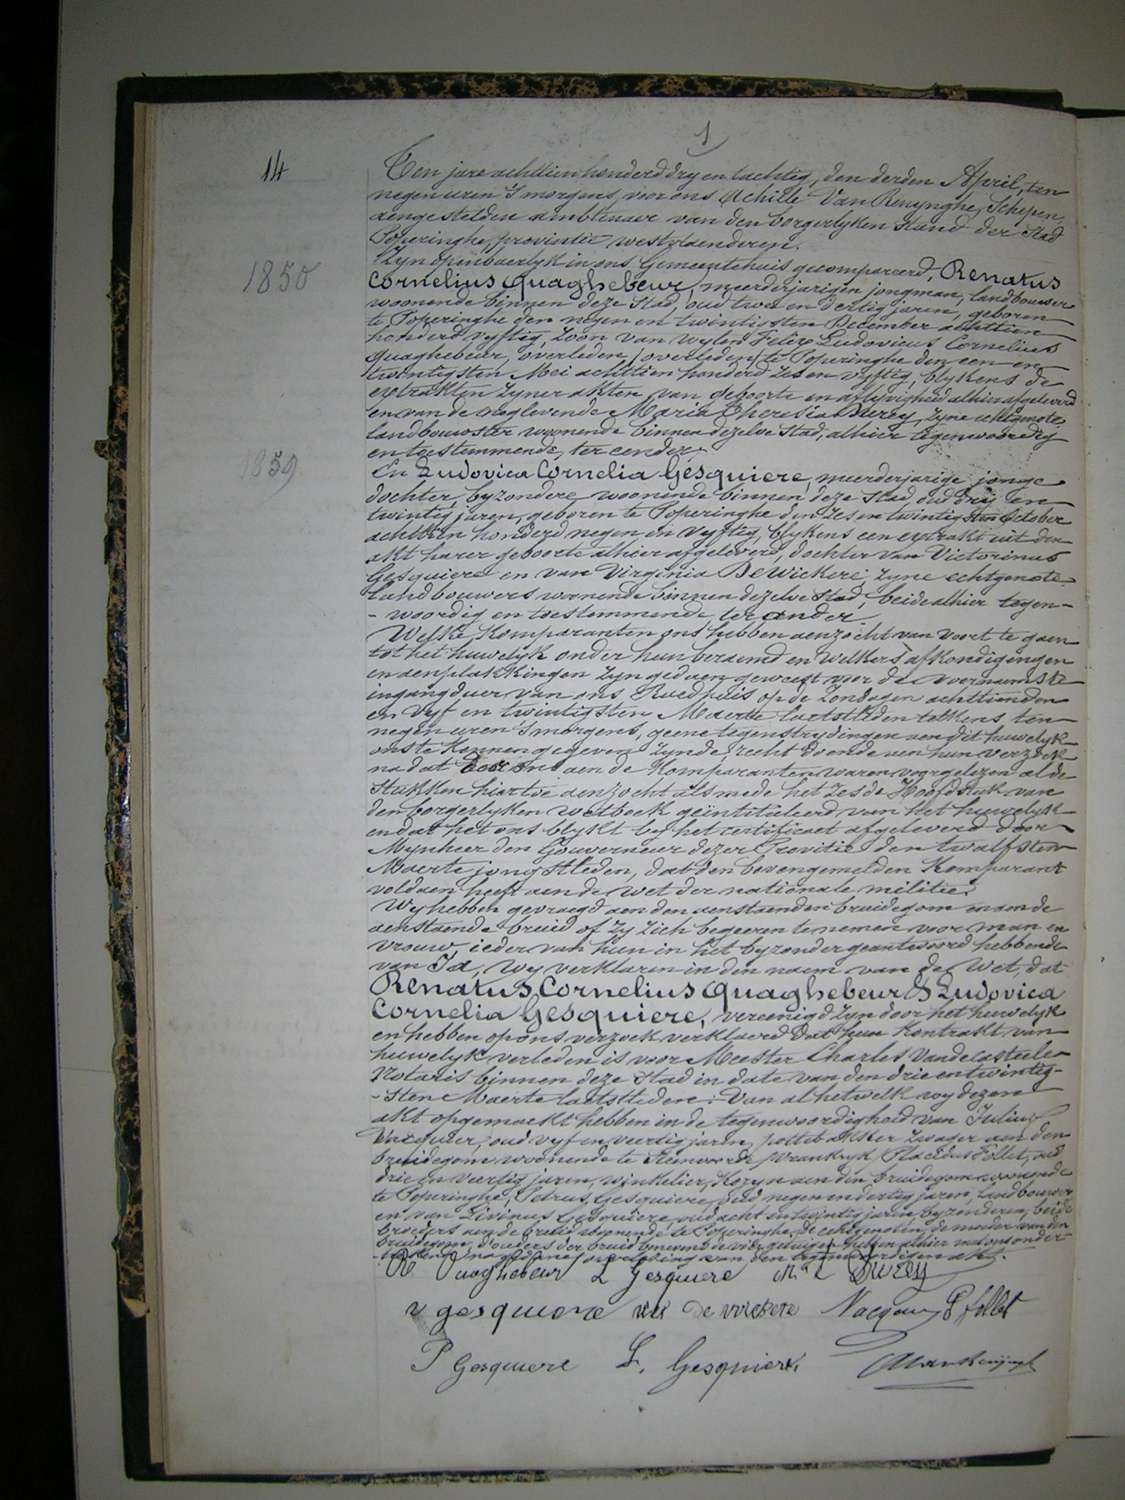 1
14
Ten jare achttien honderd dry en tachtig, den derden April, ten
negen uren 's morgens, voor ons Achille Van Renynghe, Schepen,
aengestelden ambtenaer van den borgerlyken stand der Stad
Poperinghe, provintie westvlaenderen.
Zyn openbaerlyk in ons Gemeentehuis gecompareerd, Renatus
1850
Cornelius Quaghebeur, meerderjarigen jongman, landbouwer
woonende binnen deze Stad, oud twee en dertig jaren, geboren
te Poperinghe den negen en twintigsten December achttien
honderd vyftig, zoon van wylen Felix Ludovicus Cornelius
Quaghebeur, overleden overleden te Poperinghe den een en
twintigsten Mei achttien honderd zes en vyftig, blykens de
extrakten zyner akten van geboorte en aflyvigheid alhier afgeleverd
en van de neglevende Maria Theresia Durey, zyne echtgenote
landbouwster woonende binnen dezelve stad, alhier tegenwoordig
en toestemmende, ter eender
1859
En Ludovica Cornelia Gesquiere, meerderjarige jonge
dochter, byzondere, woonende binnen deze Stad oud dry en
twintig jaren, geboren te Poperinghe den zes en twintigsten October
achttien honderd negen en vyftig, blykens een extrakt uit den
akt harer geboorte alhier afgeleverd, dochter van Victorinus
Gesquiere en van Virginia De Wickere, zyne echtgenote
landbouwers woonende binnen dezelve stad, beide alhier tegen-
-woordig en toestemmende ter ander.
Welke Komparanten ons hebben aenzocht van voort te gaen
tot het huwelyk onder hun beraemd en welkers afkondigingen
en aenplakkingen zyn gedaen geweest voor de voornaemste
ingangduer van ons Raedhuis op de Zondagen achttienden
en vyf en twintigsten Maerte laetstleden telkens ten
negen uren 's morgens, geene tegenstrydingen aen dit huwelyk
ons te kennen gegeven zynde, recht doende aen hun verzoek
na dat door ons aen de Komparanten waren voorgelezen al de
Stukken hiertoe aenzocht alsmede het zesde Hoofdstuk van
den borgerlyken wetboek geïntituleerd van het huwelyk
en dat het ons blykt by het certificaet afgeleverd door
Mynheer den Gouverneur dezer Provitie den twalfsten
Maerte jongstleden, dat den bevengemelden Komparant
voldaen heeft aen de wet der nationale militie.
Wy hebben gevraegd aen den aenstaenden bruidegom en aen de
aenstaende bruid of zy zich begeeren te nemen voor man en
vrouw, ieder van hun in het byzonder geantwoord hebbende
van Ja, wy verklaren in den naem van de Wet, dat
Renatus Cornelius Quaghebeur & Ludovica
Cornelia Gesquiere, vereenigd zyn door het huwelyk
en hebben op ons verzoek verklaerd dat hun kontrakt van
huwelyk verleden is voor Meester Charles Vandecasteele
Notaris binnen deze Stad in date van den drie en twintig-
-sten Maerte laetstleden; Van al hetwelk wy dezen
akt opgemaekt hebben in de tegenwoordigheid van Julius
oud vyf en veertig jaren, pottebakker zwager aen den
bruidegom woonende te Steenvoorde Vrankryk, Placidus Follet, oud
drie en veertig jaren, winkelier, Kozyn aen den bruidegom woonende
te Poperinghe, Petrus Gesquiere, oud negen en dertig jaren, landbouwer
en van Livinus Gesquiere, oud acht en twintig jaren byzonderen, beide
broeders aen de bruid woonende te Poperinghe, de echtgenoten, de moeder van den
bruidegom, d'ouders der bruid en de vier getuigen hebben alhier met ons onder-
R Quaghebeur L Gesquiere M. T. Durey
v gesquiere De wickere Vacquer P follet
P Gesquiere L. Gesquiere